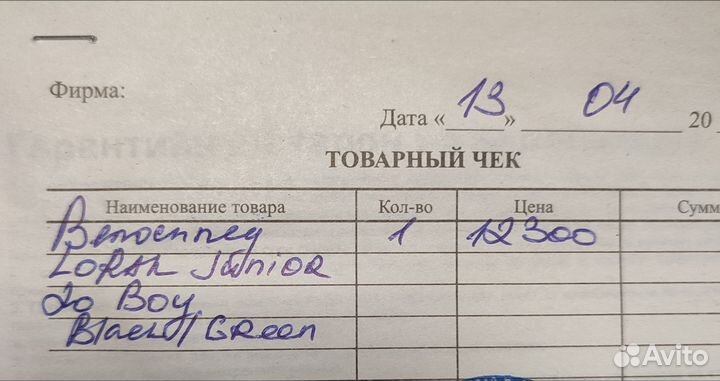 Фирма:
Дата « 13 » 04 20
ТОВАРНЫЙ ЧЕК
Наименование товара Кол-во Цена Сумм
Велосипед 1 12300
LORAK Junior
20 Boy
Black/Green
Avito